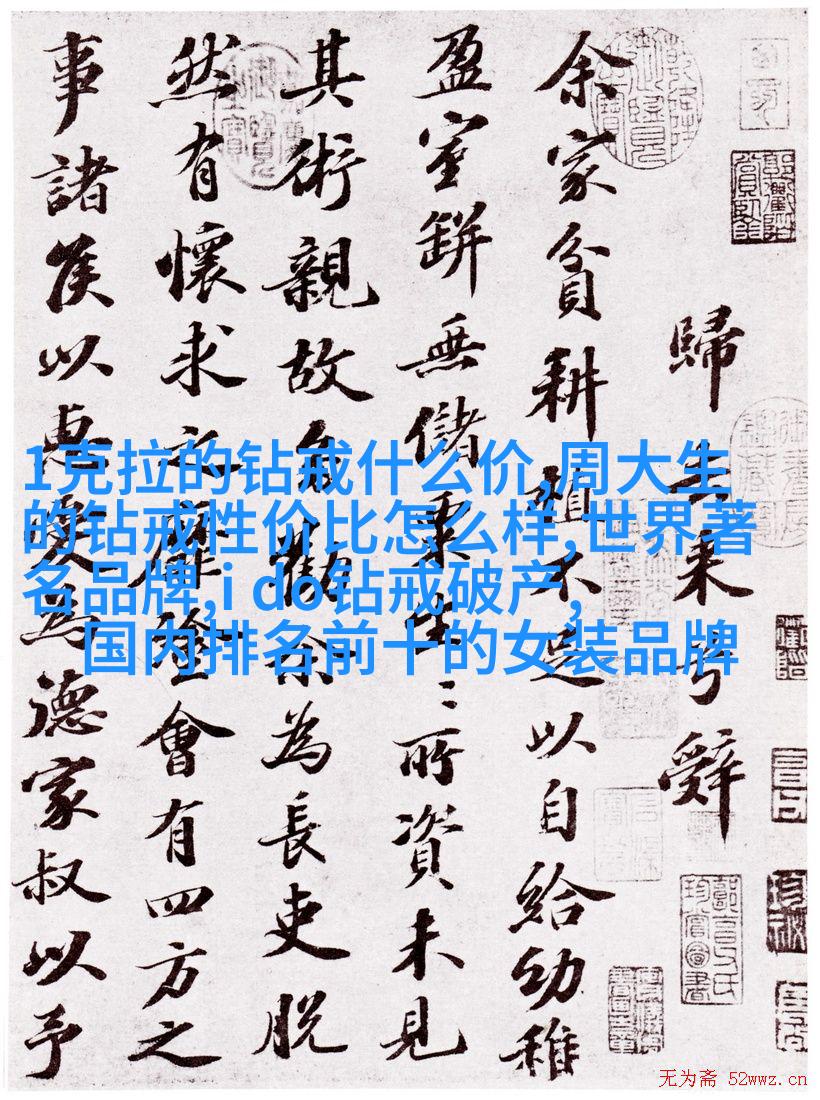 歸去來兮辭
余家貧耕植不足以自給幼稚
盈室缾無儲粟生〻所資未見
其術親故多勸余為長吏脫
然有懷求之靡途會有四方之
事諸侯以惠愛為德家叔以予
1克拉的钻戒什么价,周大生
的钻戒性价比怎么样,世界著
名品牌,i do钻戒破产,
国内排名前十的女装品牌
无为斋 52wwz.cn